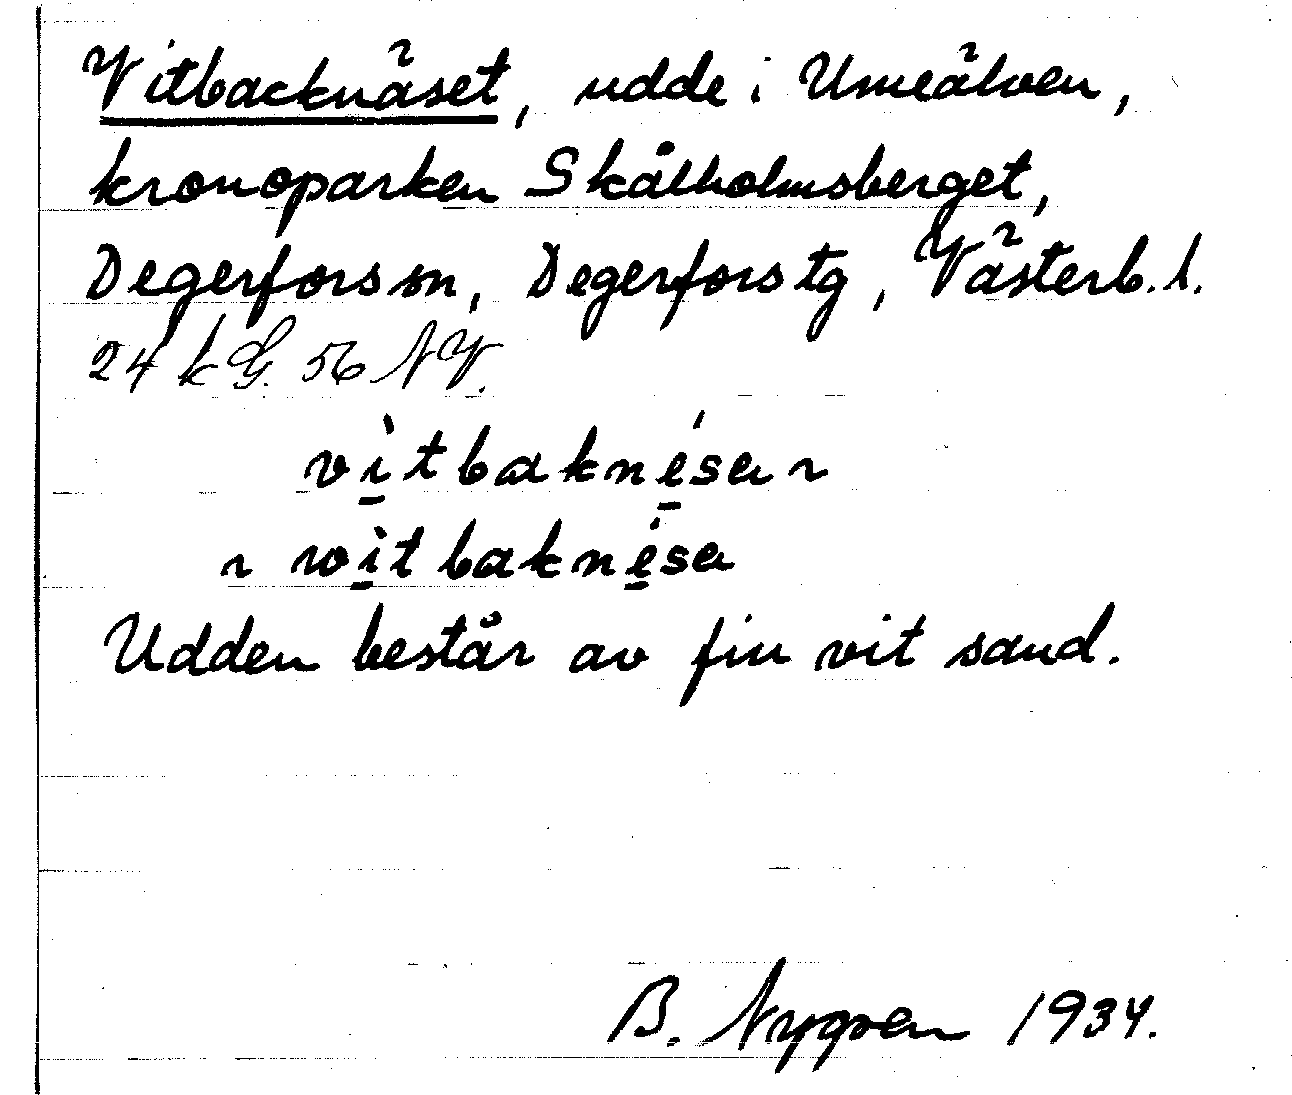 Vitbacknäset, udde i Umeälven,
kronoparken Skålholmsberget,
Degerfors sn, Degerfors tg, Västerb. l.
24 k G. 56 NV.
vì̱tbakné̱sen ~
~ wì̱tbakné̱sen
Udden består av fin vit sand.
B. Nygren 1934.